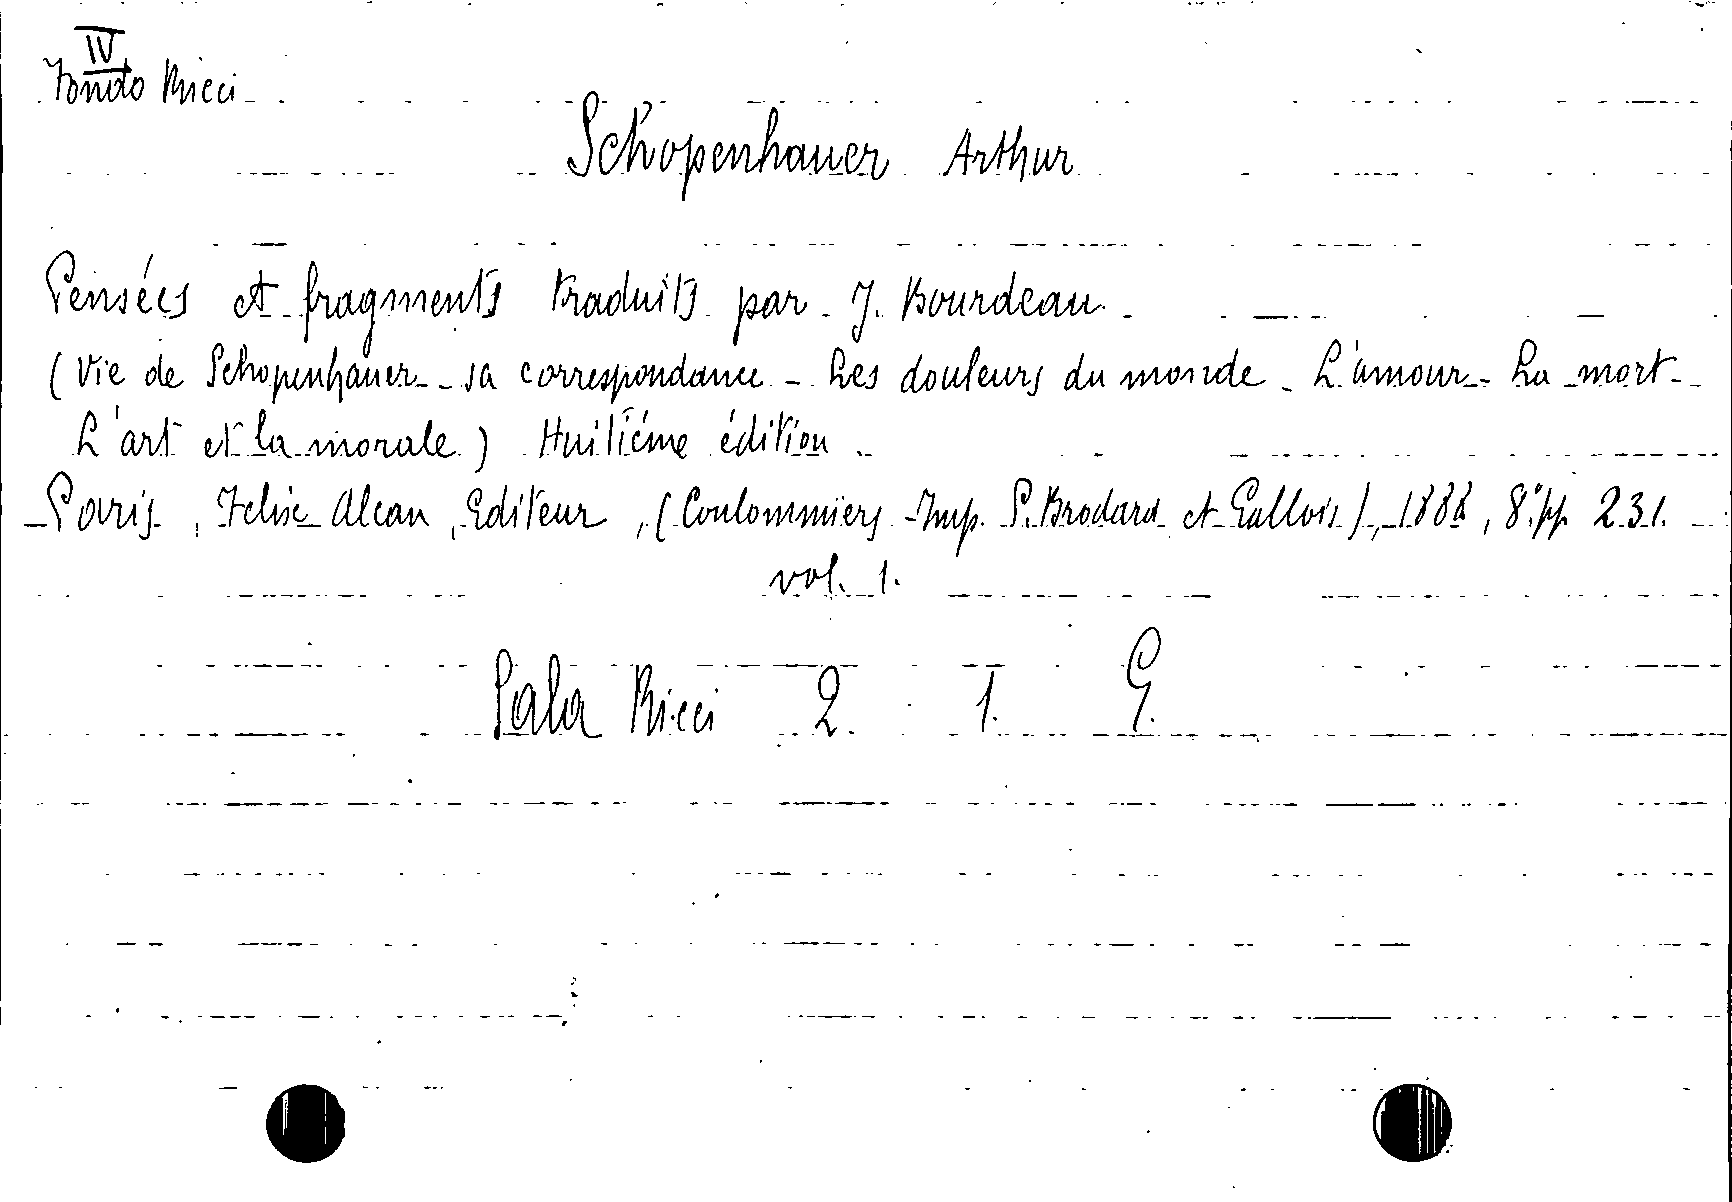 IV
Fondo Ricci
Schopenhauer Arthur
Pensées et fragments traduits par J. Bourdeau.
(Vie de Schopenhauer - sa correspondance - Les douleurs du monde - L'amour - La mort -
L'art et la morale) Huitiéme édition
Paris, Felix Alcan, Editeur, (Coulommiers Imp. P. Brodard et Gallois), 1888, 8° pp 231.
vol. 1.
Sala Ricci 2. 1. G.